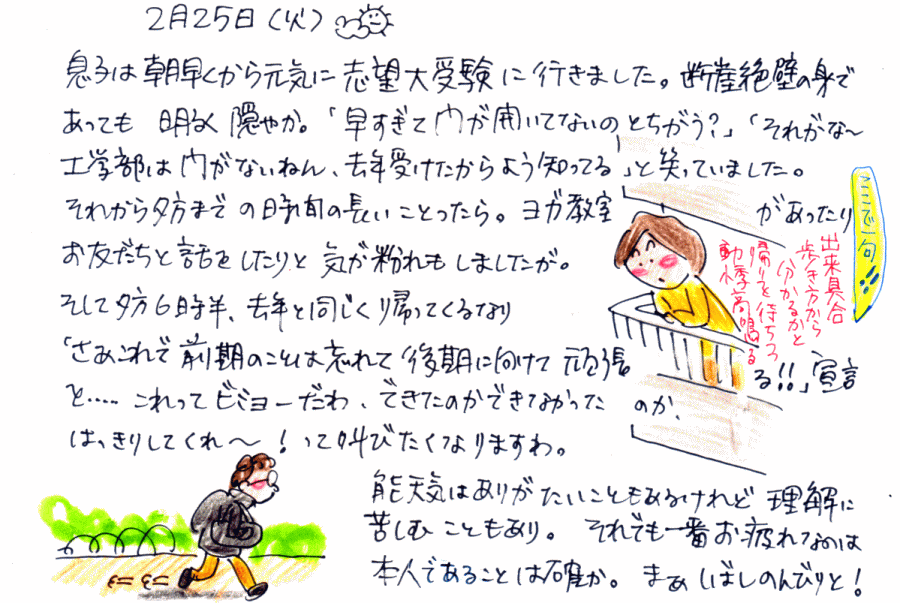 2月25日（火）
息子は朝早くから元気に志望大受験に行きました。断崖絶壁の身で
あっても 明るく 隠やか。「早すぎて門が開いてないのとちがう？」「それがな〜
工学部は門がないねん、去年受けたからよう知ってる」と笑っていました。
それから夕方までの時間の長いことったら。ヨガ教室 があったり
お友だちと話をしたりと気が粉れもしましたが。
そして夕方6時半、去年と同じく帰ってくるなり
「さあこれで前期のことは忘れて後期に向けて頑張る!!」宣言
と…… これってビミョーだわ、できたのができなかったのか、
はっきりしてくれ〜！って叫びたくなりますわ。
能天気はありがたいこともあるけれど 理解に
苦しむこともあり。それでも一番お疲れなのは
本人であることは確か。まぁしばしのんびりと！
ここで一句!!
出来具合
歩き方から
分かるかと
帰りを待ちつつ
動悸高鳴る